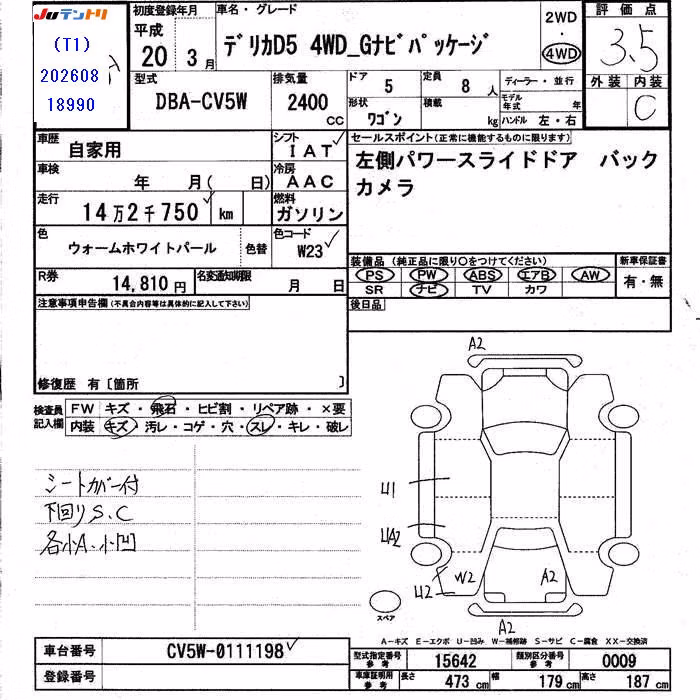 JUテントリ
(T1)
202608
18990
初度登録年月
平成
20 3月
車名・グレード
デリカD5 4WD_Gナビパッケージ
2WD
・
4WD
評価点
3.5
外装 内装
C
型式
DBA-CV5W
排気量
2400
cc
ドア
5
定員
8 人
形状
ワゴン
積載
kg
ディーラー・並行
モデル年式 年
ハンドル 左・右
車歴
自家用
シフト
IAT
車検
年 月( 日)
冷房
AAC
走行
14万2千750 km
燃料
ガソリン
色
ウォームホワイトパール
色替
色コード
W23
R券
14,810円
名変通知期限
月 日
セールスポイント(正常に機能するものに限ります)
左側パワースライドドア バック
カメラ
装備品(純正品に限り○をつけてください)
PS PW ABS エアB AW
SR ナビ TV カワ
新車保証書
有・無
後日品
注意事項申告欄(不具合内容等は具体的に記入して下さい)
修復歴 有〔箇所 〕
検査員
記入欄
FW キズ・飛石・ヒビ割・リペア跡・×要
内装 キズ・汚レ・コゲ・穴・スレ・キレ・破レ
シートカバー付
下回りS、C
各小A、小凹
A2
U1
UA2
U2
W2
A2
A2
スペア
A-キズ E-エクボ U-凹み W-補修跡 S-サビ C-腐食 XX-交換済
車台番号
CV5W-0111198
登録番号
型式指定番号
参考
15642
類別区分番号
参考
0009
車庫証明用
参考
長さ 473 cm 幅 179 cm 高さ 187 cm